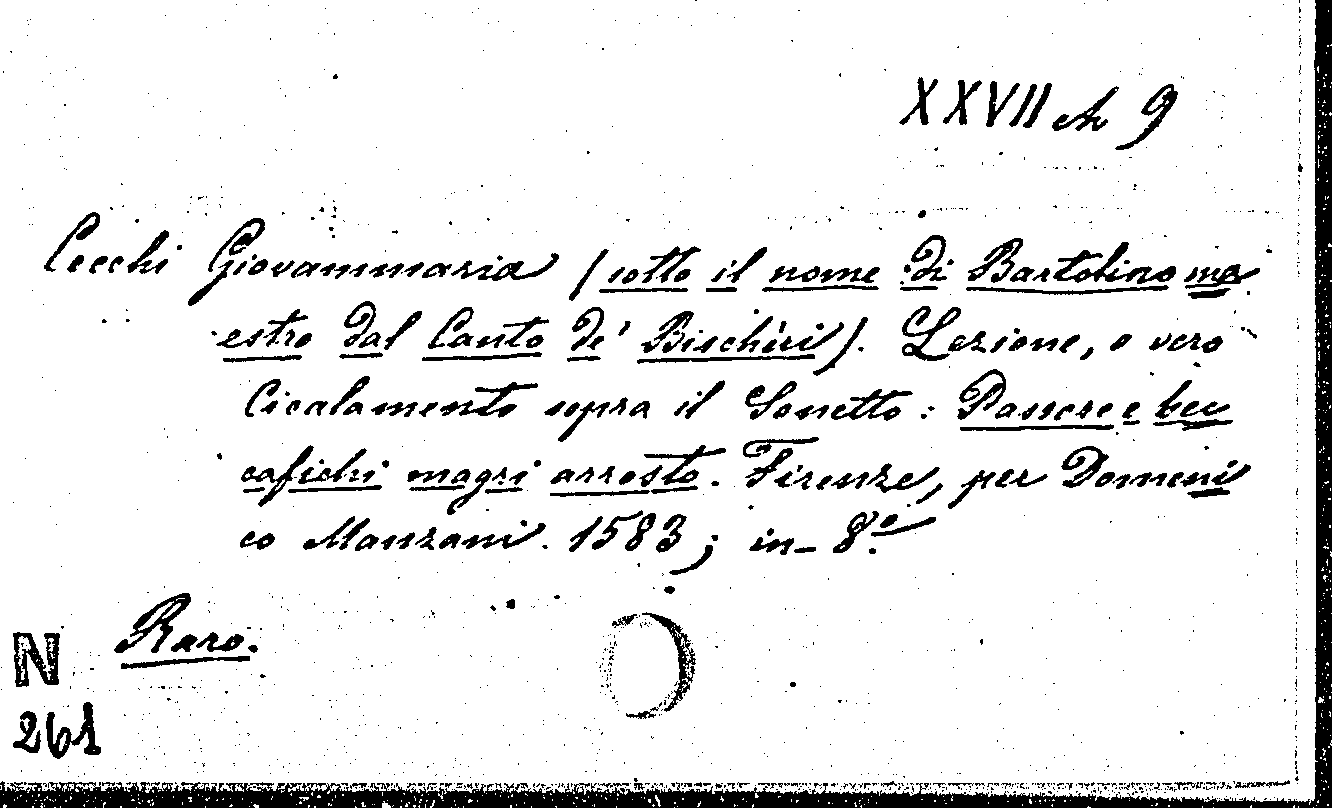 XXVII ch 9
Cecchi Giovammaria (sotto il nome di Bartolino ma
estro dal Canto de' Bischèri). Lezione, o vero
Cicalamento sopra il Sonetto: Passere e bec
cafichi magri arrosto. Firenze, per Domeni
co Manzani. 1583; in-8.º
Raro.
N
261